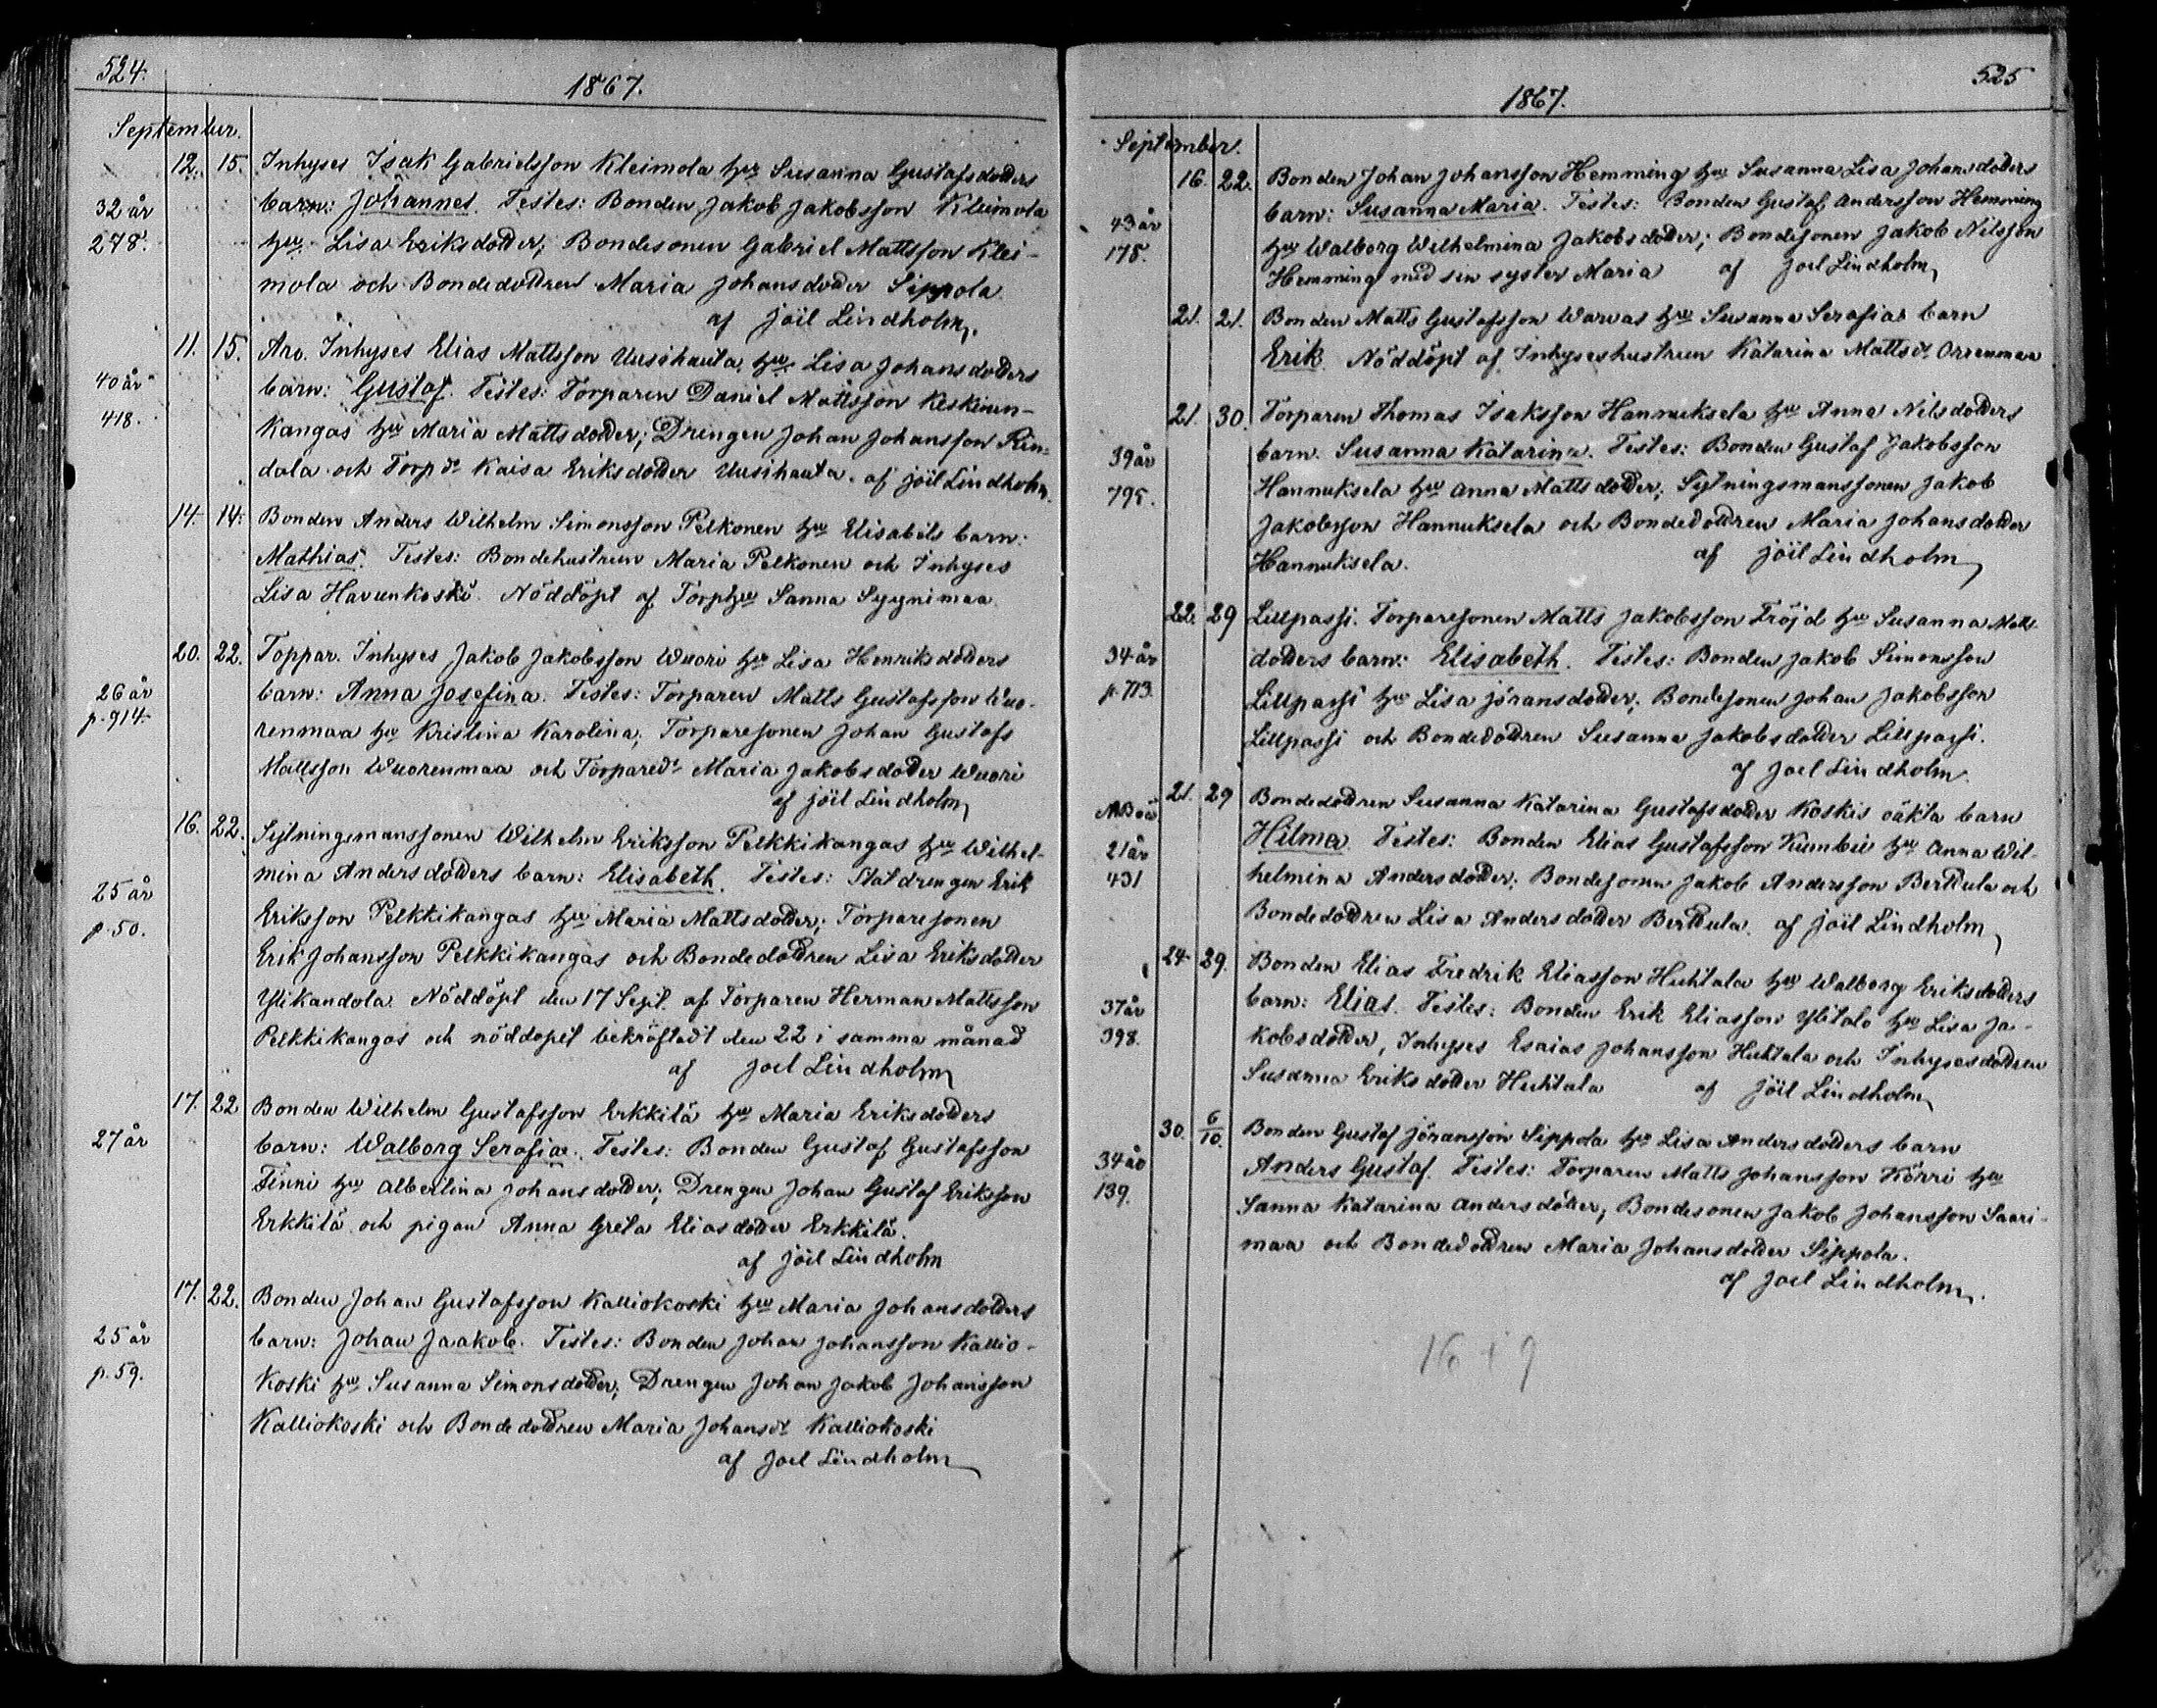 524.
1867.
September.
12. 15. Inhyses Isak Gabrielsson Kleimola hu Susanna Gustafsdotters
32 år barn: Johannes. Testes: Bonden Jakob Jakobsson Kleimola
278. hu Lisa Eriksdotter; Bondesonen Gabriel Mattsson Klei-
mola och Bondedottren Maria Johansdoter Sippola
af Joil Lindholm.
11. 15. Aro. Inhyses Elias Mattsson Uusihauta hu Lisa Johansdotters
40 år barn: Gustaf. Testes: Torparen Daniel Mattsson Keskinen-
418. kangas hu Maria Mattsdotter; Drengen Johan Johansson Rin-
dala och Torp dr Kaisa Eriksdotter Uusihauta. af Joil Lindholm
14. 14. Bonden Anders Wilhelm Simonsson Pelkonen hu Elisabets barn:
Mathias. Testes: Bondehustrun Maria Pelkonen och Inhyses
Lisa Havunkoski. Nöddöpt af Torphu Sanna Syynimaa
20. 22. Toppar. Inhyses Jakob Jakobsson Wuori hu Lisa Henriksdotters
26 år barn: Anna Josefina. Testes: Torparen Matts Gustafsson Wuo-
p. 914. renmaa hu Kristina Karolina; Torparesonen Johan Gustafs
Mattsson Wuorenmaa och Torparedr Maria Jakobsdotter Wuori
af Joil Lindholm
16. 22. Sytningsmanssonen Wilhelm Eriksson Pelkkikangas hu Wilhel-
25 år mina Andersdotters barn: Elisabeth. Testes: Statdrengen Erik
p. 50. Eriksson Pelkkikangas hu Maria Mattsdotter; Torparesonen
Erik Johansson Pelkkikangas och Bondedottren Lisa Eriksdotter
Ylikandola. Nöddöpt den 17 Sept. af Torparen Herman Mattsson
Pelkkikangas och nöddopet bekräftadt den 22 i samma månad
af Joel Lindholm
17. 22 Bonden Wilhelm Gustafsson Erkkilä hu Maria Eriksdotters
27 år barn: Walborg Serafia. Testes: Bonden Gustaf Gustafsson
Finni hu Albertina Johansdotter; Drengen Johan Gustaf Eriksson
Erkkilä och pigan Anna Greta Eliasdoter Erkkilä.
af Joil Lindholm
17. 22. Bonden Johan Gustafsson Kalliokoski hu Maria Johansdotters
25 år barn: Johan Jaakob. Testes: Bonden Johan Johansson Kallio-
p. 59. koski hu Susanna Simonsdotter; Drengen Johan Jakob Johansson
Kalliokoski och Bondedottren Maria Johansdr Kalliokoski
af Joel Lindholm
525
1867.
September.
16. 22. Bonden Johan Johansson Hemming hu Susanna Lisa Johansdotters
43 år barn: Susanna Maria. Testes: Bonden Gustaf Andersson Hemming
178. hu Walborg Wilhelmina Jakobsdotter; Bondesonen Jakob Nilsson
Hemming med sin syster Maria af Joel Lindholm
21. 21. Bonden Matts Gustafsson Warvas hu Susanna Serafias barn
Erik. Nöddöpt af Inhyseshustrun Katarina Mattsdr Orrenmaa
21. 30. Torparen Thomas Isaksson Hannuksela hu Anna Nilsdotters
39 år barn. Susanna Katarina. Testes: Bonden Gustaf Jakobsson
795. Hannuksela hu Anna Mattsdotter; Sytningsmanssonen Jakob
Jakobsson Hannuksela och Bondedottren Maria Johansdotter
Hannuksela. af Joil Lindholm
22. 29 Lillpassi. Torparesonen Matts Jakobsson Fröjd hu Susanna Matts-
34 år dotters barn: Elisabeth. Testes: Bonden Jakob Simonsson
p. 713. Lillpassi hu Lisa Jöransdotter; Bondesonen Johan Jakobsson
Lillpassi och Bondedottren Susanna Jakobsdotter Lillpassi.
af Joel Lindholm.
21. 29 Bondedottren Susanna Katarina Gustafsdotter Koskis oäkta barn
21 år Hilma. Testes: Bonden Elias Gustafsson hu Anna Wil-
431 helmina Andersdotter; Bondesonen Jakob Andersson Berttula och
Bondedottren Lisa Andersdotter Berttula. af Joil Lindholm
24. 29. Bonden Elias Fredrik Eliasson Huhtala hu Walborg Eriksdotters
37 år barn: Elias. Testes: Bonden Erik Eliasson Ylitalo hu Lisa Ja-
398. kobsdotter, Inhyses Esaias Johansson Huhtala och Inhysesdottren
Susanna Eriksdotter Huhtala af Joil Lindholm
30. 6/10. Bonden Gustaf Jöransson Sippola hu Lisa Andersdotters barn
34 år Anders Gustaf. Testes: Torparen Matts Johansson Körri hu
139. Sanna Katarina Andersdotter, Bondesonen Jakob Johansson Saari-
maa och Bondedottren Maria Johansdotter Sippola.
af Joel Lindholm.
16 + 9